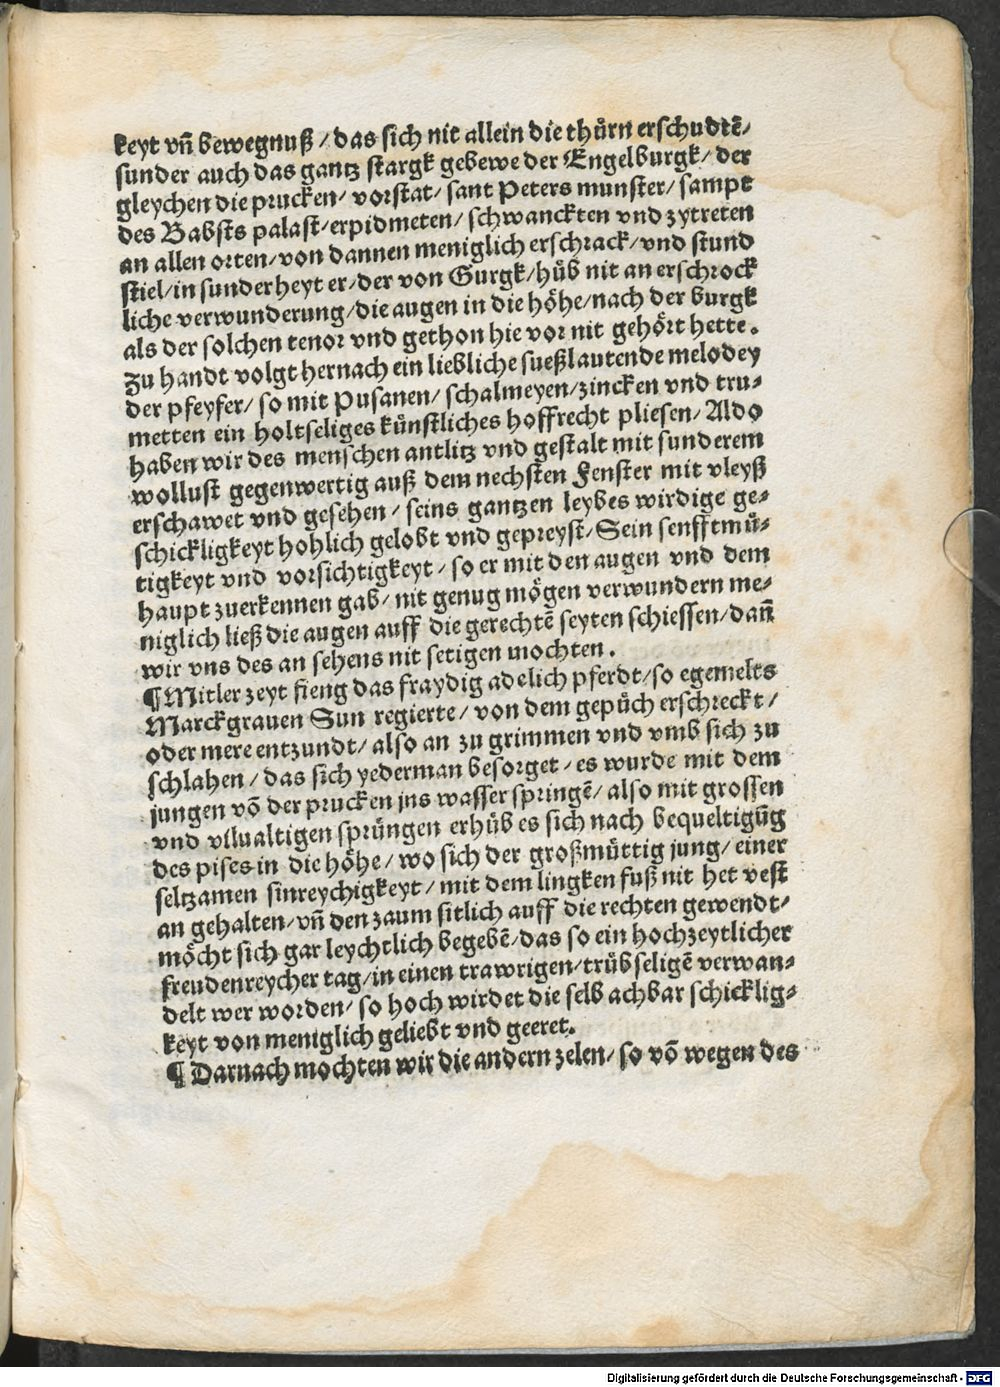 keyt vn̄ bewegnuß / das sich nit allein die thůrn erschudtē/
sunder auch das gantz stargk gebewe der Engelburgk/ der
gleychen die prucken/ vorstat/ sant Peters munster/ sampt
des Babsts palast/ erpidmeten/ schwanckten vnd zytreten
an allen orten/ von dannen meniglich erschrack/ vnd stund
stiel/ in sunderheyt er/ der von Gurgk/ hůb nit an erschrock
liche verwunderung/ die augen in die höhe/ nach der burgk
als der solchen tenor vnd gethon hie vor nit gehört hette.
Zu handt volgt hernach ein liebliche sueßlautende melodey
der pfeyfer/ so mit Pusanen/ schalmeyen/ zincken vnd tru-
metten ein holtseliges künstliches hoffrecht pliesen/ Aldo
haben wir des menschen antlitz vnd gestalt mit sunderem
wollust gegenwertig auß dem nechsten Fenster mit vleyß
erschawet vnd gesehen/ seins gantzen leybes wirdige ge-
schickligkeyt hohlich gelobt vnd gepreyst/ Sein senfftmů-
tigkeyt vnd vorsichtigkeyt/ so er mit den augen vnd dem
haupt zuerkennen gab/ nit genug mögen verwundern me-
niglich ließ die augen auff die gerechtē seyten schiessen/ dan̄
wir vns des an sehens nit setigen mochten.
¶ Mitler zeyt fieng das fraydig adelich pferdt/ so egemelts
Marckgrauen Sun regierte/ von dem gepůch erschreckt/
oder mere entzundt/ also an zu grimmen vnd vmb sich zu
schlahen/ das sich yederman besorget/ es wurde mit dem
jungen vō der prucken jns wasser springē/ also mit grossen
vnd viluältigen sprüngen erhůb es sich nach bequeltigūg
des pises in die höhe/ wo sich der großmüttig jung/ einer
seltzamen sinreychigkeyt/ mit dem lingken fuß nit het vest
an gehalten/ vn̄ den zaum sitlich auff die rechten gewendt/
möcht sich gar leychtlich begebē/ das so ein hochzeytlicher
freudenreycher tag/ in einen trawrigen/ trübseligē verwan-
delt wer worden/ so hoch wirdet die selb achbar schicklig-
keyt von meniglich geliebt vnd geeret.
¶ Darnach mochten wir die andern zelen/ so vō wegen des
Digitalisierung gefördert durch die Deutsche Forschungsgemeinschaft - DFG